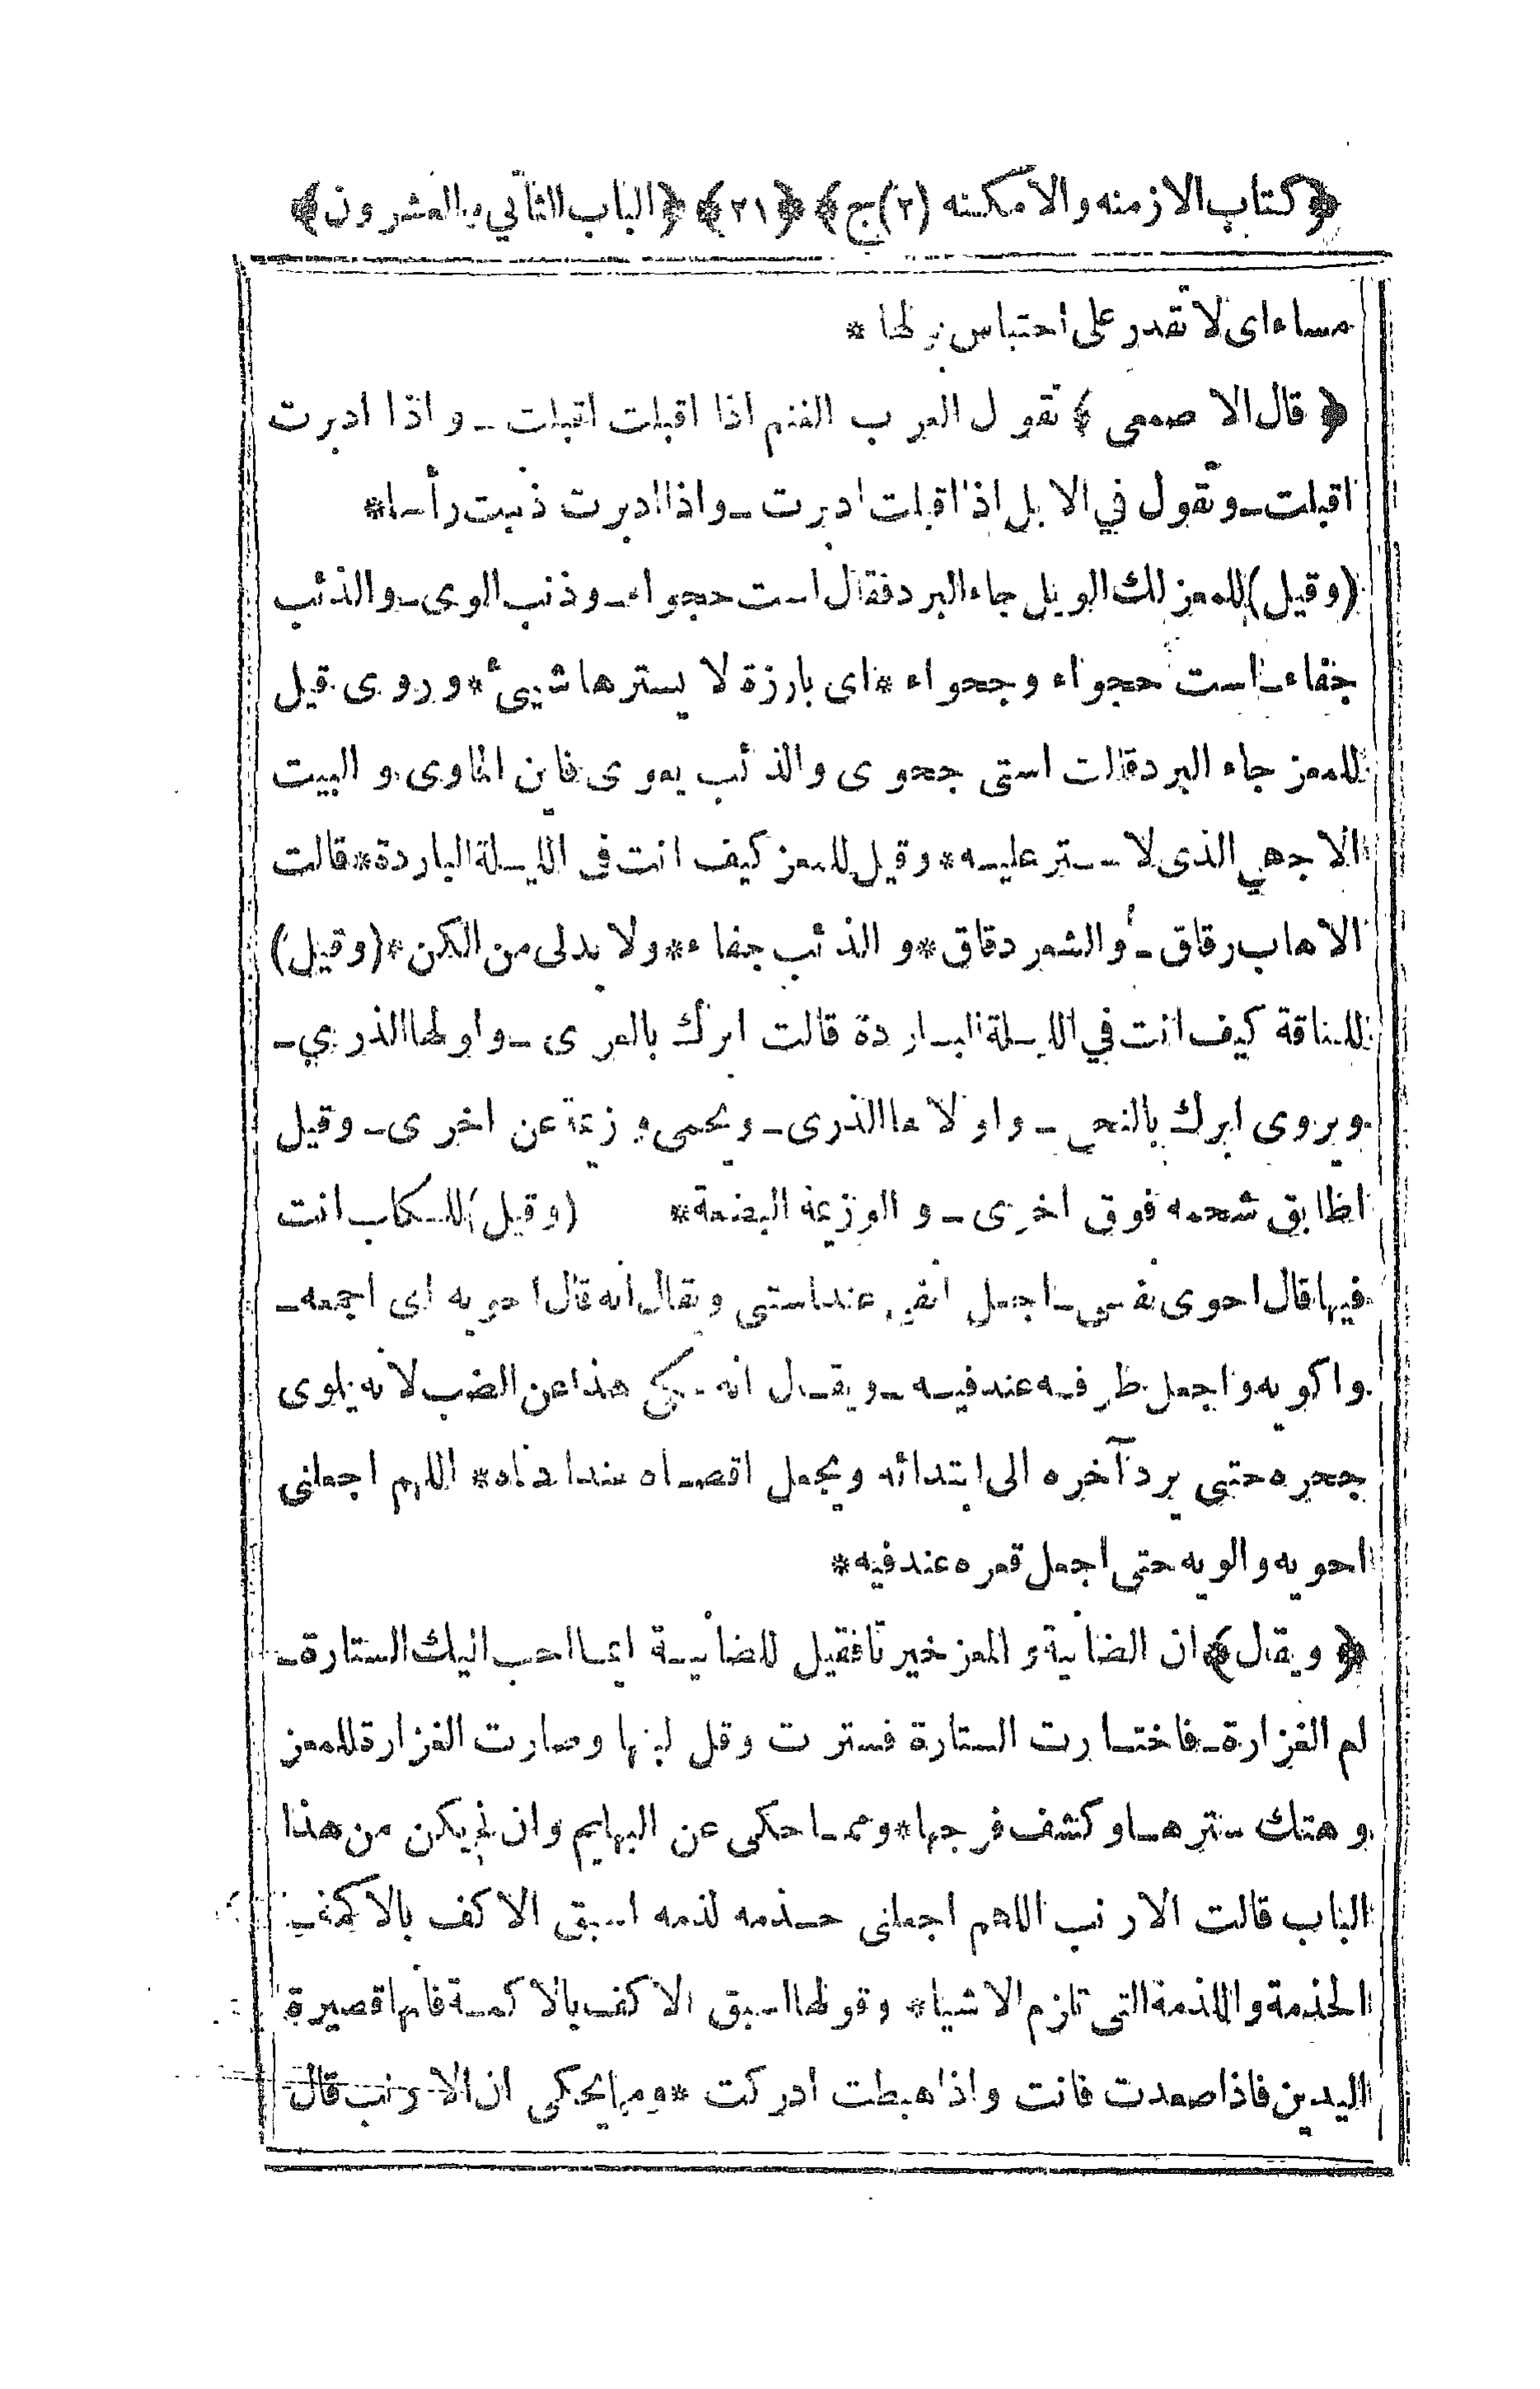 ﴿كتاب الازمنه والامكنه (٢) ج﴾ ﴿٢١﴾ ﴿الباب الثاني والعشرون﴾
مساء اى لا تقدر على احتباس بولها *
﴿ قال الا صمعى ﴾ تقول العرب الغنم اذا اقبلت اقبلت ـ واذا ادبرت
اقبلت ـ وتقول في الابل اذا اقبلت ادبرت ـ واذا ادبرت ذهبت رأسا *
(وقيل) للمعز لك الويل جاء البرد فقال است حجواء ـ وذنب الوى ـ والذئب
جفاء ـ است حجواء وجحواء * اى بارزة لا يسترها شيئ * وروى قيل
للمعز جاء البرد قالت استى جحوى والذئب يعوى فاين المأوى والبيت
الاجهى الذى لا ستر عليه * وقيل للمعز كيف انت فى الليلة الباردة * قالت
الاهاب رقاق ـ والشعر دقاق * والذئب جفاء * ولا بدلى من الكن * (وقيل)
للناقة كيف انت في الليلة الباردة قالت ابرك بالعرى ـ واولها الذري ـ
ويروى ابرك بالنحى ـ واولاها الذرى ـ ويحمى وزعة عن اخرى ـ وقيل
اطابق شحمه فوق اخرى ـ والوزيمة البضعة * (وقيل) للكاب انت
فيها قال احوى نفسى ـ اجعل انفى عند استى ويقال انه قال احويه اى اجمعه ـ
واكويه واجعل طرفه عند فيه ـ ويقال انه حكى هذا عن الضب لانه يلوى
جحره حتى يرد آخره الى ابتدائه ويجعل اقصاه عند ادناه * اللهم اجعلنى
احويه والويه حتى اجعل قعره عند فيه *
﴿ ويقال ﴾ ان الضأنية والمعز خيرتا فقيل للضأنية ايما احب اليك الستارة ـ
لم الغزارة ـ فاختارت الستارة فسترت وقل لبنها وصارت الغزارة للمعز
وهتك سترها وكشف فرجها * ومما حكى عن البهايم وان لم يكن من هذا
الباب قالت الارنب اللهم اجعلنى حذمه لذمه اسبق الاكف بالاكمة ـ
الحذمة واللذمة التى تلزم الاشياء * وقولها اسبق الاكف بالاكمة فانها قصيرة
اليدين فاذا صعدت فاتت واذا هبطت ادركت * ومما يحكى ان الارنب قال